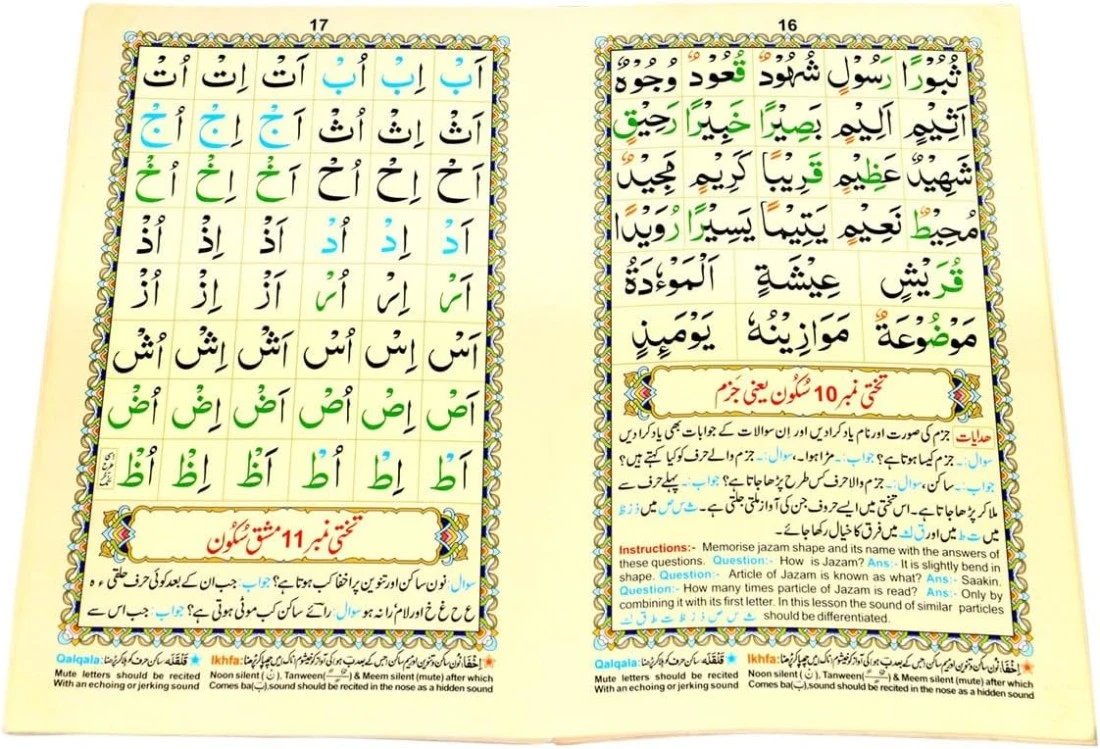 16
ثُبُوْرًا رَسُوْلٍ شُهُوْدٌ قُعُوْدٌ وُجُوْهٌ
اَثِيْمٍ اَلِيْمٍ بَصِيْرًا خَبِيْرًا رَحِيْقٍ
شَهِيْدٌ عَظِيْمٍ قَرِيْبًا كَرِيْمٍ مَجِيْدٌ
مُحِيْطٌ نَعِيْمٍ يَتِيْمًا يَسِيْرًا رُوَيْدًا
قُرَيْشٍ عِيْشَةٍ اَلْمَوْءٗدَةُ
مَوْضُوْعَةٌ مَوَازِيْنُهٗ يَوْمَئِذٍ
تختی نمبر 10 سُکُوْن یعنی جَزْم
ھدایات جزم کی صورت اور نام یاد کرادیں اور اِن سوالات کے جوابات بھی یاد کرادیں
سوال:۔ جزم کیسا ہوتا ہے؟ جواب:۔ مڑا ہوا۔، سوال:۔ جزم والے حرف کو کیا کہتے ہیں؟
جواب:۔ ساکن، سوال:۔ جزم والا حرف کس طرح پڑھا جاتا ہے؟ جواب:۔ پہلے حرف سے
ملا کر پڑھا جاتا ہے۔ اس تختی میں ایسے حروف جن کی آواز ملتی جلتی ہے۔ ث س ص میں ذ ز ظ
میں ت ط میں اور ق ك میں فرق کا خیال رکھا جائے۔
Instructions:- Memorise jazam shape and its name with the answers of
these questions. Question:- How is Jazam? Ans:- It is slightly bend in
shape. Question:- Article of Jazam is known as what? Ans:- Saakin.
Question:- How many times particle of Jazam is read? Ans:- Only by
combining it with its first letter. In this lesson the sound of similar particles
ث س ص ذ ز ظ ت ط ق ك should be differentiated.
Ikhfa: اِخْفَا: نون ساکن اور تنوین اور میم ساکن
Noon silent (ن), Tanween & Meem silent (mute) after which
Comes ba(ب), sound should be recited in the nose as a hidden sound
Qalqala: قَلْقَلَه ساکن حرف کو ہلا کر پڑھنا
Mute letters should be recited
With an echoing or jerking sound
17
اَبْ اِبْ اُبْ اَتْ اِتْ اُتْ
اَثْ اِثْ اُثْ اَجْ اِجْ اُجْ
اَحْ اِحْ اُحْ اَخْ اِخْ اُخْ
اَدْ اِدْ اُدْ اَذْ اِذْ اُذْ
اَرْ اِرْ اُرْ اَزْ اِزْ اُزْ
اَسْ اِسْ اُسْ اَشْ اِشْ اُشْ
اَصْ اِصْ اُصْ اَضْ اِضْ اُضْ
اَطْ اِطْ اُطْ اَظْ اِظْ اُظْ
تختی نمبر 11 مشق سُکُوْن
سوال: نون ساکن اور تنوین پر اخفا کب ہوتا ہے؟ جواب: جب ان کے بعد کوئی حرف حلقی ء ہ
ع ح غ خ اور لام ُرا نہ ہو سوال: رائے ساکن کب موٹی ہوتی ہے؟ جواب: جب اس سے
Ikhfa: اِخْفَا: نون ساکن اور تنوین اور میم ساکن
Noon silent (ن), Tanween & Meem silent (mute) after which
Comes ba(ب), sound should be recited in the nose as a hidden sound
Qalqala: قَلْقَلَه ساکن حرف کو ہلا کر پڑھنا
Mute letters should be recited
With an echoing or jerking sound